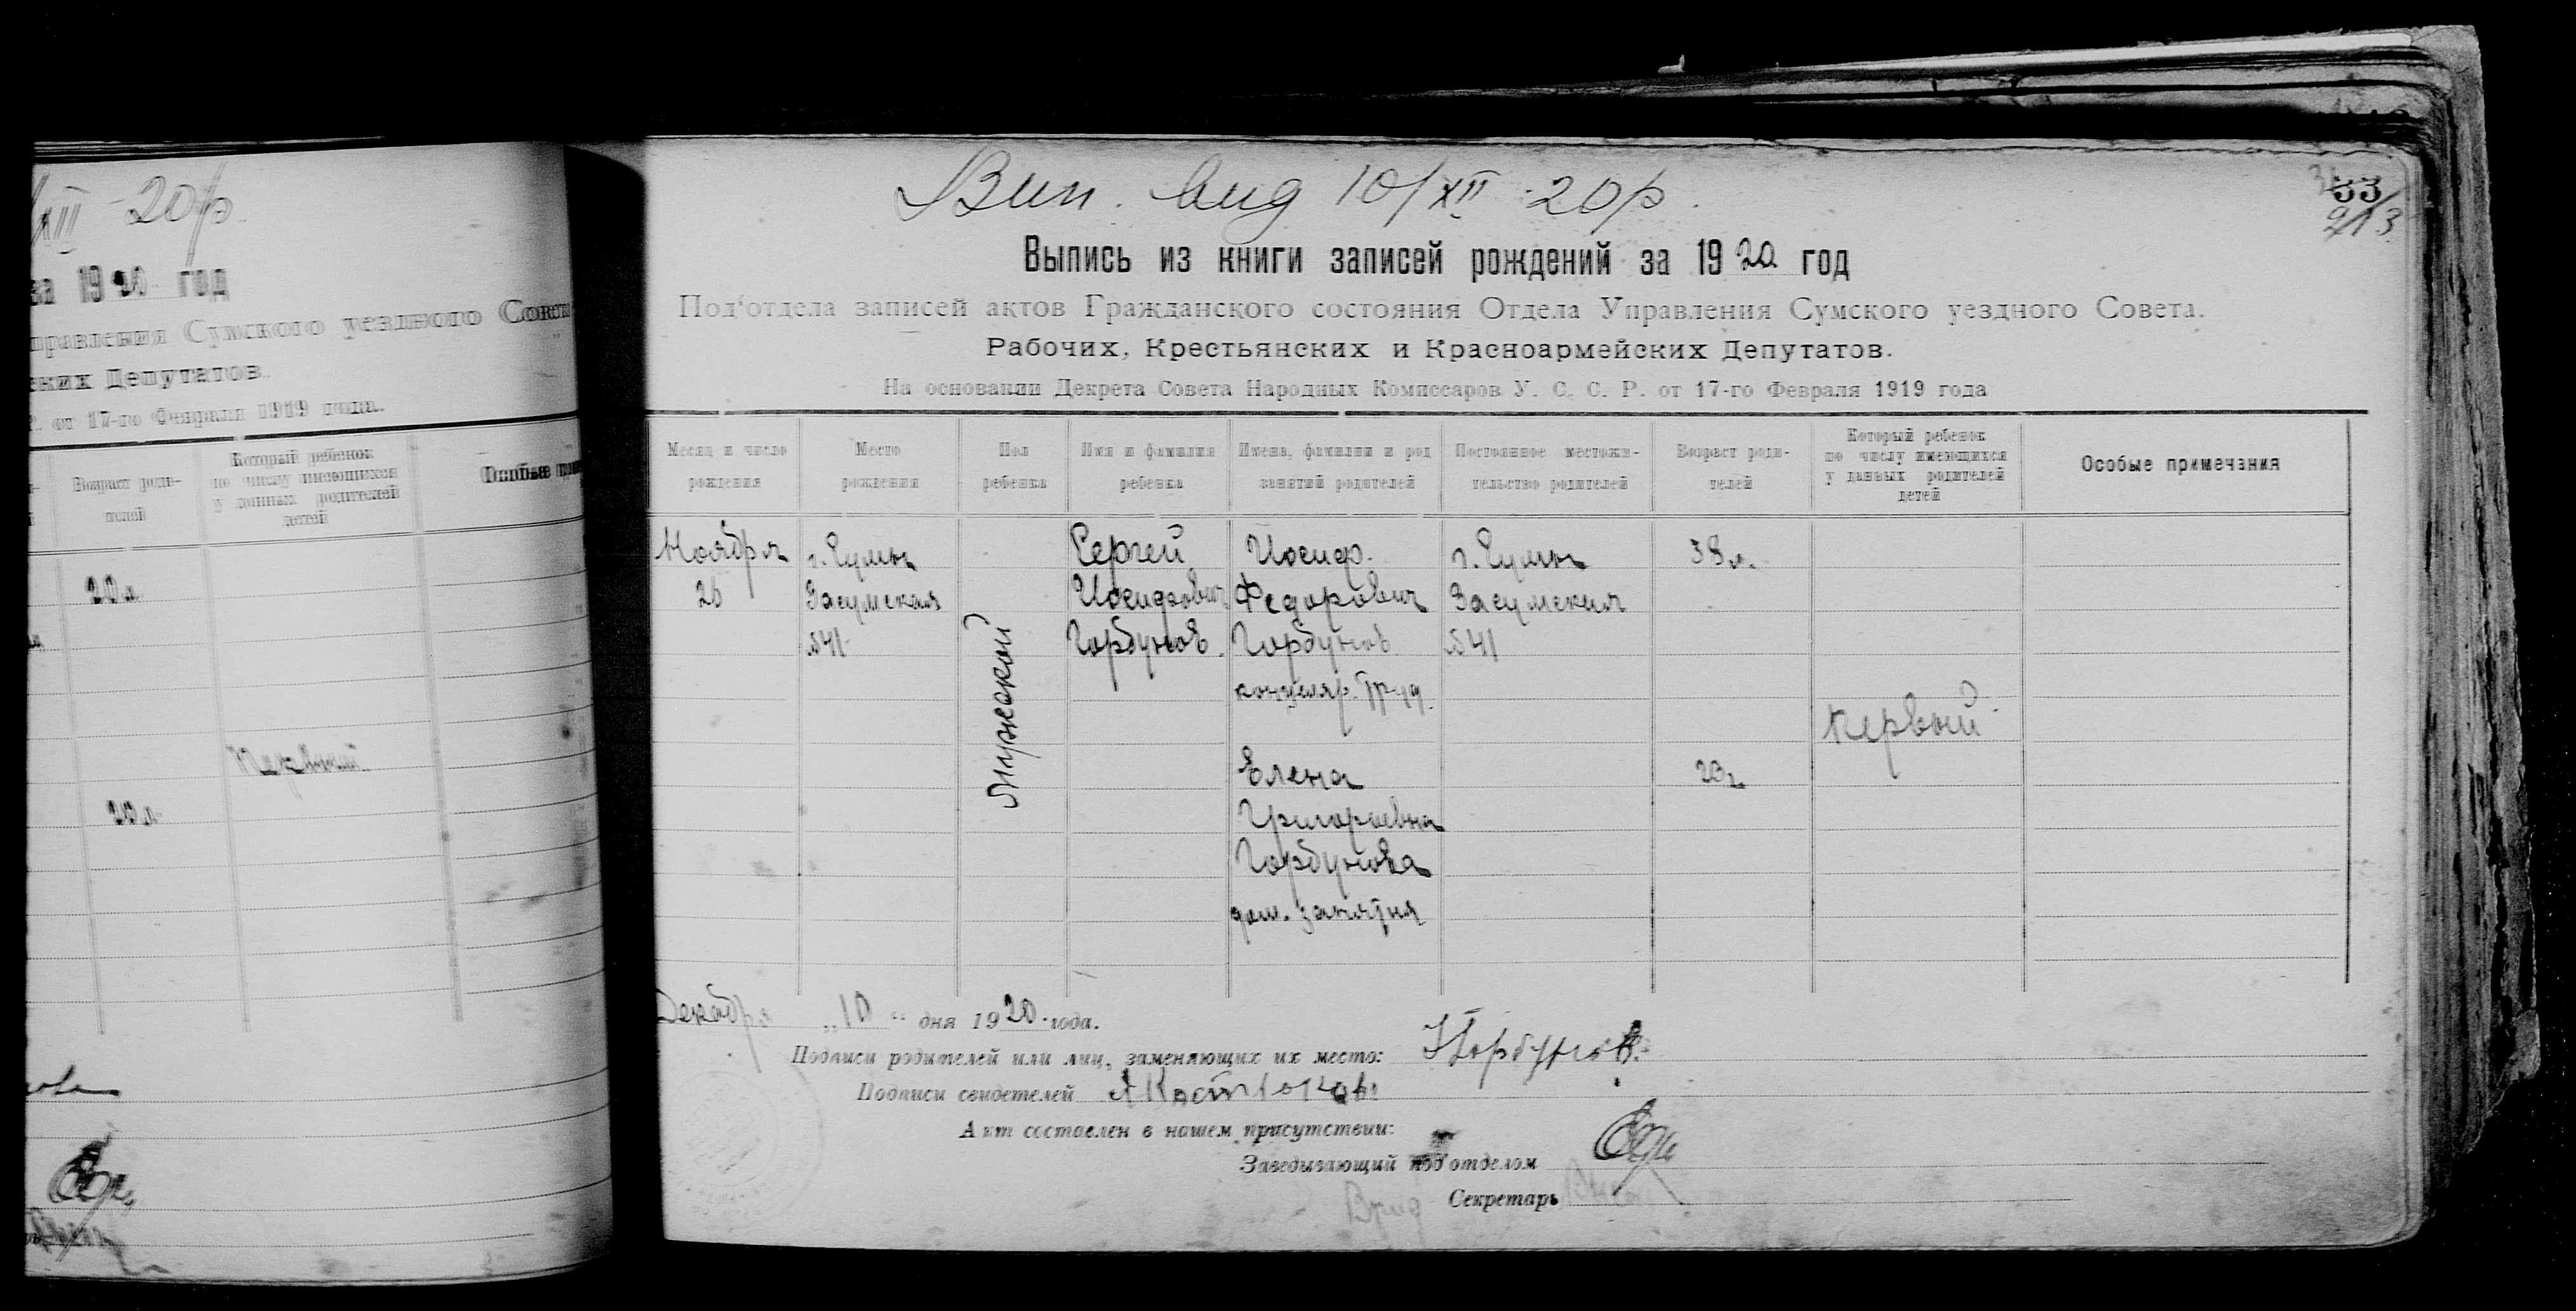 /XII 20р
за 1920 год
правления Сумского уездного Сове
ских Депутатов.
Р. от 17-го Февраля 1919 года.
Возраст роди-
телей
Который ребенок
по числу имеющихся
у данных родителей
детей
Особые при
20 л.
Первый
20 л.
Вип. вид 10/XII 20р.
33
Выпись из книги записей рождений за 1920 год
Под‘отдела записей актов Гражданского состояния Отдела Управления Сумского уездного Совета.
Рабочих, Крестьянских и Красноармейских Депутатов.
На основании Декрета Совета Народных Комиссаров У. С. С. Р. от 17-го Февраля 1919 года
Месяц и число
рождения
Место
рождения
Пол
ребенка
Имя и фамилия
ребенка
Имена, фамилии и род
занятий родителей
Постоянное местожи-
тельство родителей
Возраст роди-
телей
Который ребенок
по числу имеющихся
у данных родителей
детей
Особые примечания
Ноября
26
г. Сумы
Засумская
№41
Мужеской
Сергей
Иосифович
Горбунов.
Иосиф.
Федорович
Горбунов
канцеляр. труд.
Елена
Григорьевна
Горбунова
дом. занятия
г. Сумы
Засумская
№41
38 л.
23 г.
Первый
Декабря „10“ дня 1920 года.
Подписи родителей или лиц, заменяющих их место: Горбунов.
Подписи свидетелей
Акт составлен в нашем присутствии:
Заведывающий под‘отделом
Врид Секретарь